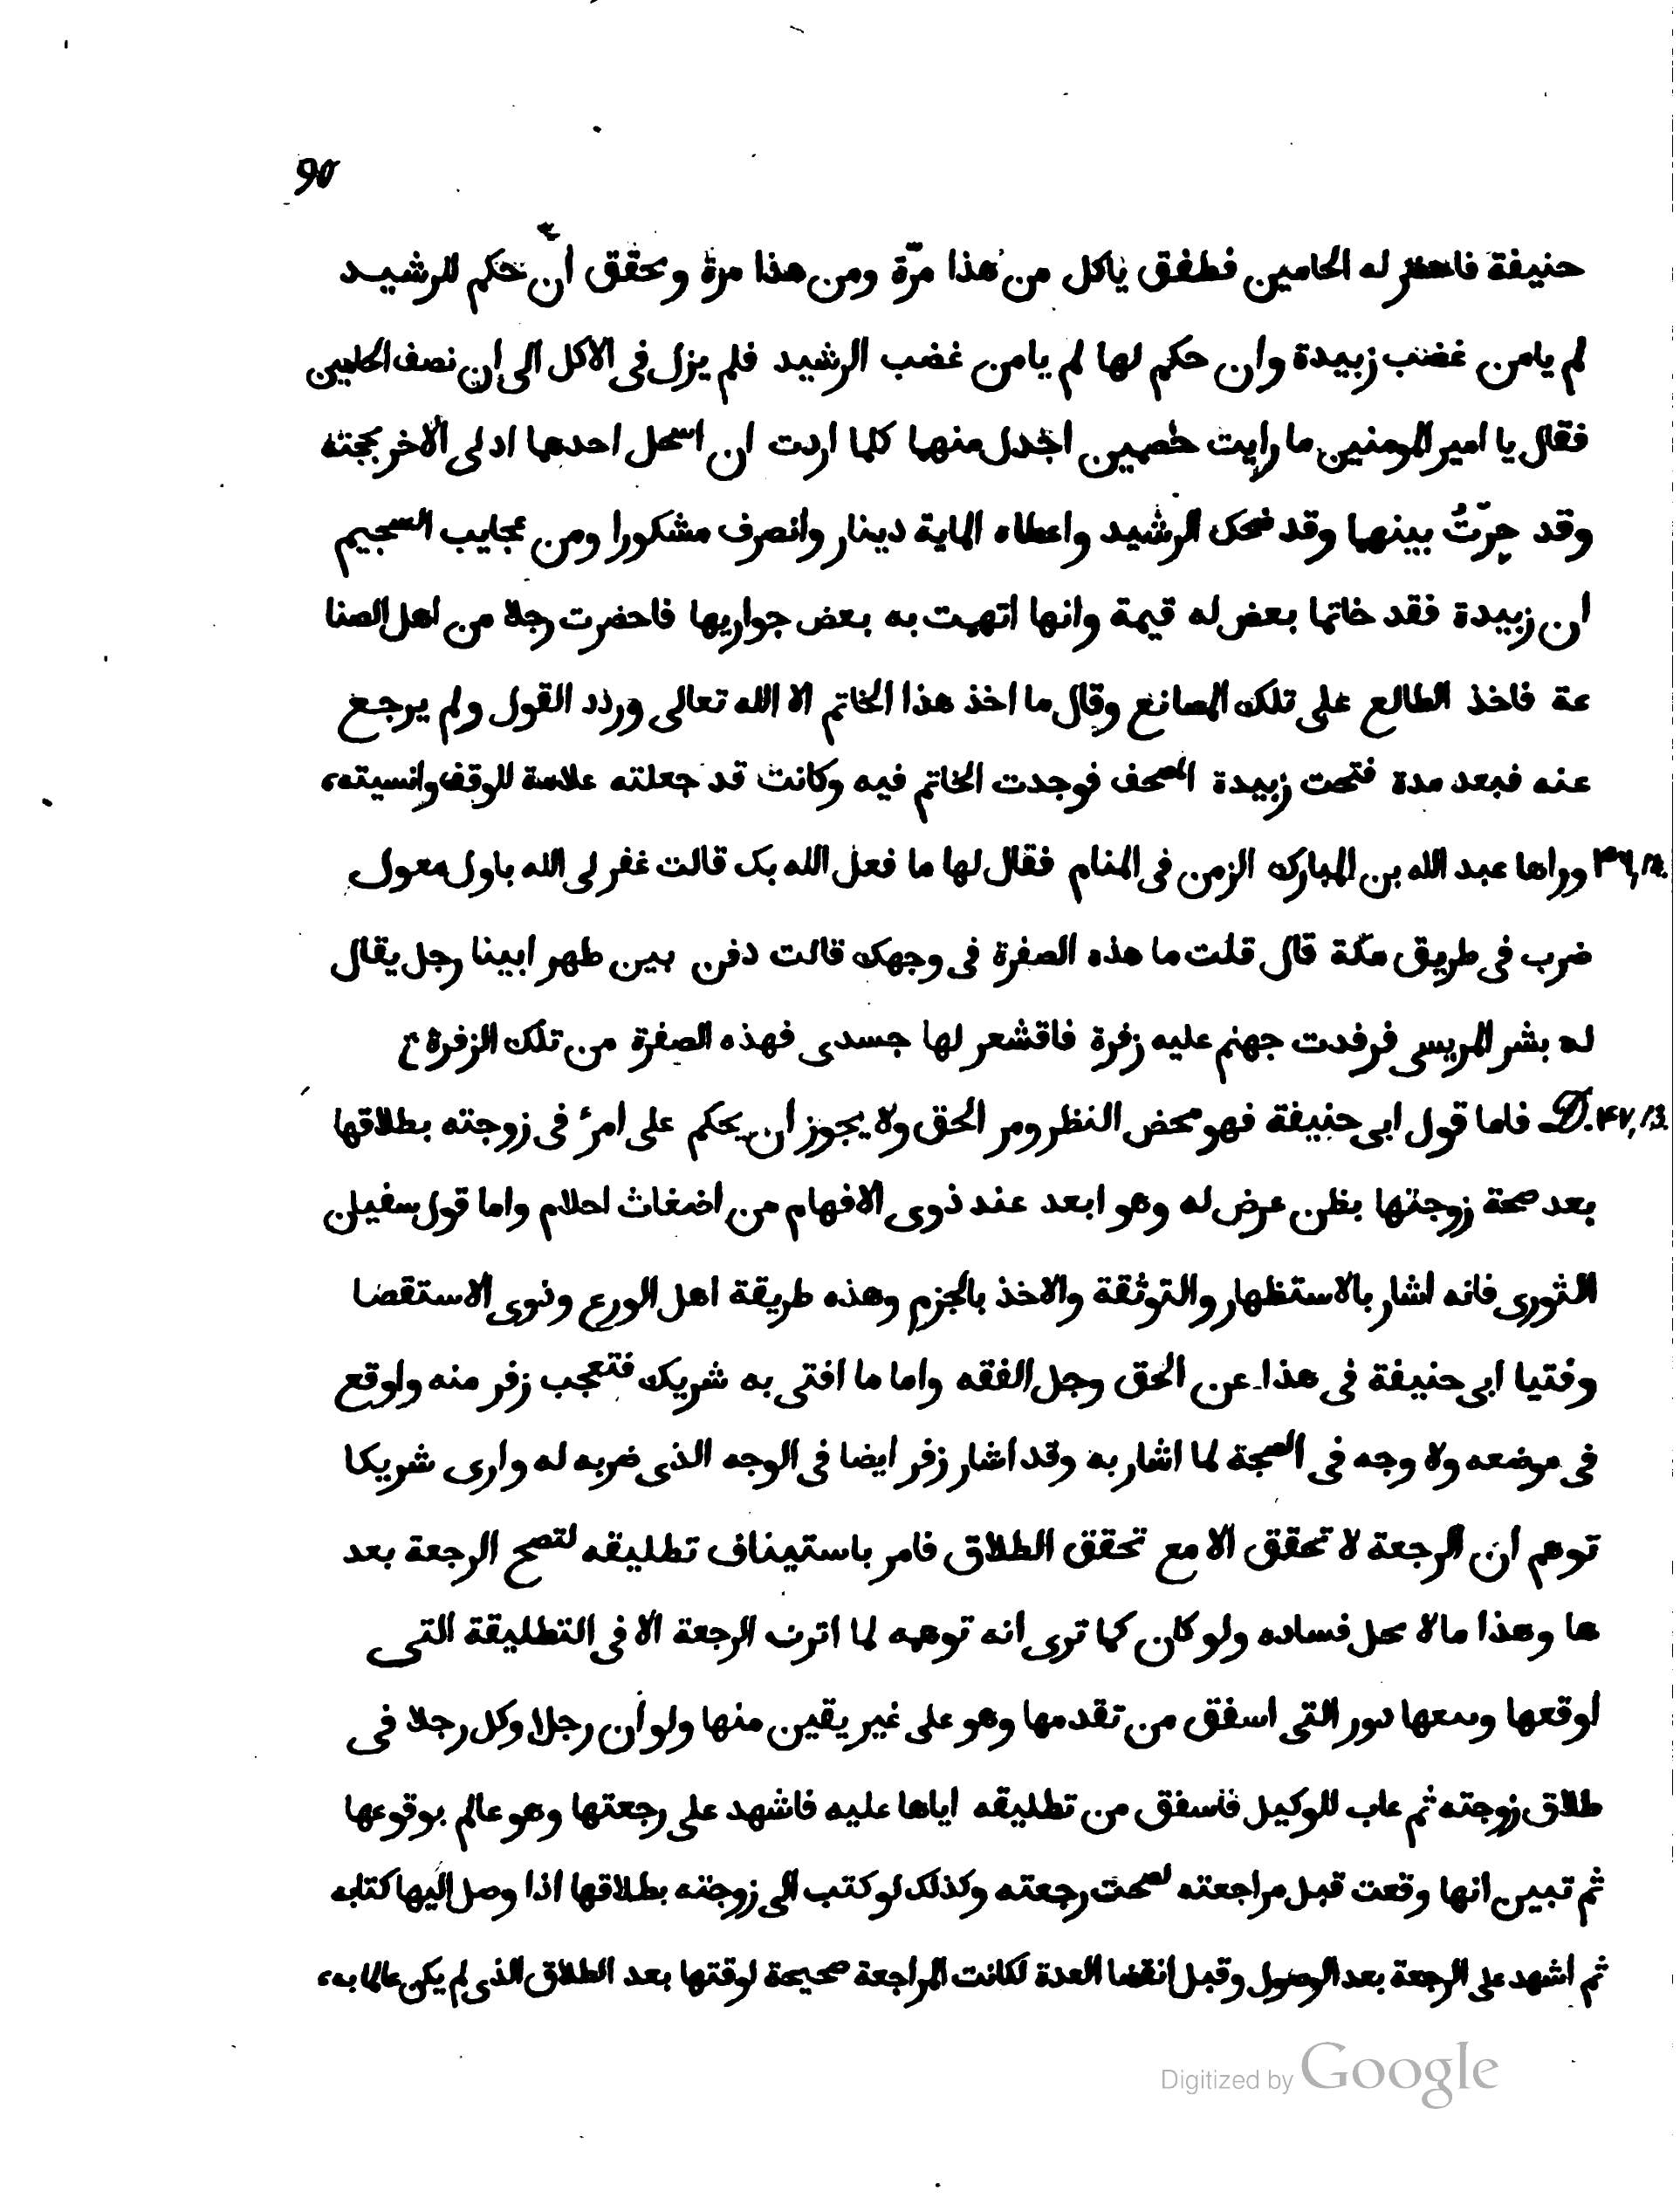 90
حنيفة فاحضر له الحامين فطفق ياكل من هذا مرّة ومن هذا مرة وتحقق انّه حكم للرشيد
لم يامن غضب زبيدة وان حكم لها لم يامن غضب الرشيد فلم يزل في الاكل الى ان نصف الحامين
فقال يا امير المومنين ما رايت خصمين اجدل منهما كلما اردت ان اسجل احدهما ادلى الاخر بحجته
وقد حِرّتُ بينهما وقد ضحك الرشيد واعطاه الماية دينار وانصرف مشكورا ومن عجايب التنجيم
ان زبيدة فقد خاتما بعض له قيمة وانها اتهمت به بعض جواريها فاحضرت رجلا من اهل الصنا
عة فاخذ الطالع على تلك الصانع وقال ما اخذ هذا الخاتم الا الله تعالى وردد القول ولم يرجع
عنه فبعد مدة فتحت زبيدة المصحف فوجدت الخاتم فيه وكانت قد جعلته علامة للوقف وانسيته،
٣٦,١٢. وراها عبد الله بن المبارك الزمن في المنام فقال لها ما فعل الله بك قالت غفر لى الله باول معول
ضرب في طريق مكة قال قلت ما هذه الصفرة في وجهك قالت دفن بين طهر ابينا رجل يقال
له بشر المريسى فرفدت جهنم عليه زفرة فاقشعر لها جسدى فهذه الصفرة من تلك الزفرة
D. ۴٧,١3. فاما قول ابى حنيفة فهو محض النظر ومر الحق ولا يجوز ان يحكم على امرء في زوجته بطلاقها
بعد صحة زوجتها بظن عرض له وهو ابعد عند ذوى الافهام من اضغاث احلام واما قول سفيان
الثورى فانه اشار بالاستظهار والتوثقة والاخذ بالجزم وهذه طريقة اهل الورع وذوى الاستقضا
وفتيا ابى حنيفة في هذا عن الحق وجل الفقه واما ما افتى به شريك فتعجب زفر منه واوقع
في موضعه ولا وجه في الصحة لما اشار به وقد اشار زفر ايضا في الوجه الذى ضربه له وارى شريكا
توهم ان الرجعة لا تحقق الا مع تحقق الطلاق فامر باستيناف تطليقه لتصح الرجعة بعد
ها وهذا مالا يحل فساده ولو كان كما ترى انه توهمه لما اثرت الرجعة الا في التطليقة التى
اوقعها التى اسفق من تقدمها وهو على غير يقين منها ولو ان رجلا وكل رجلا في
طلاق زوجته ثم غاب للوكيل فاسفق من تطليقه اياها عليه فاشهد على رجعتها وهو عالم بوقوعها
ثم تبين انها وقعت قبل مراجعته لصحت رجعته وكذلك لو كتب الى زوجته بطلاقها اذا وصل اليها كتابه
ثم اشهد على الرجعة بعد الوصول وقبل انقضا العدة لكانت المراجعة صحيحة لوقتها بعد الطلاق الذى لم يكن عالما به،
Digitized by Google